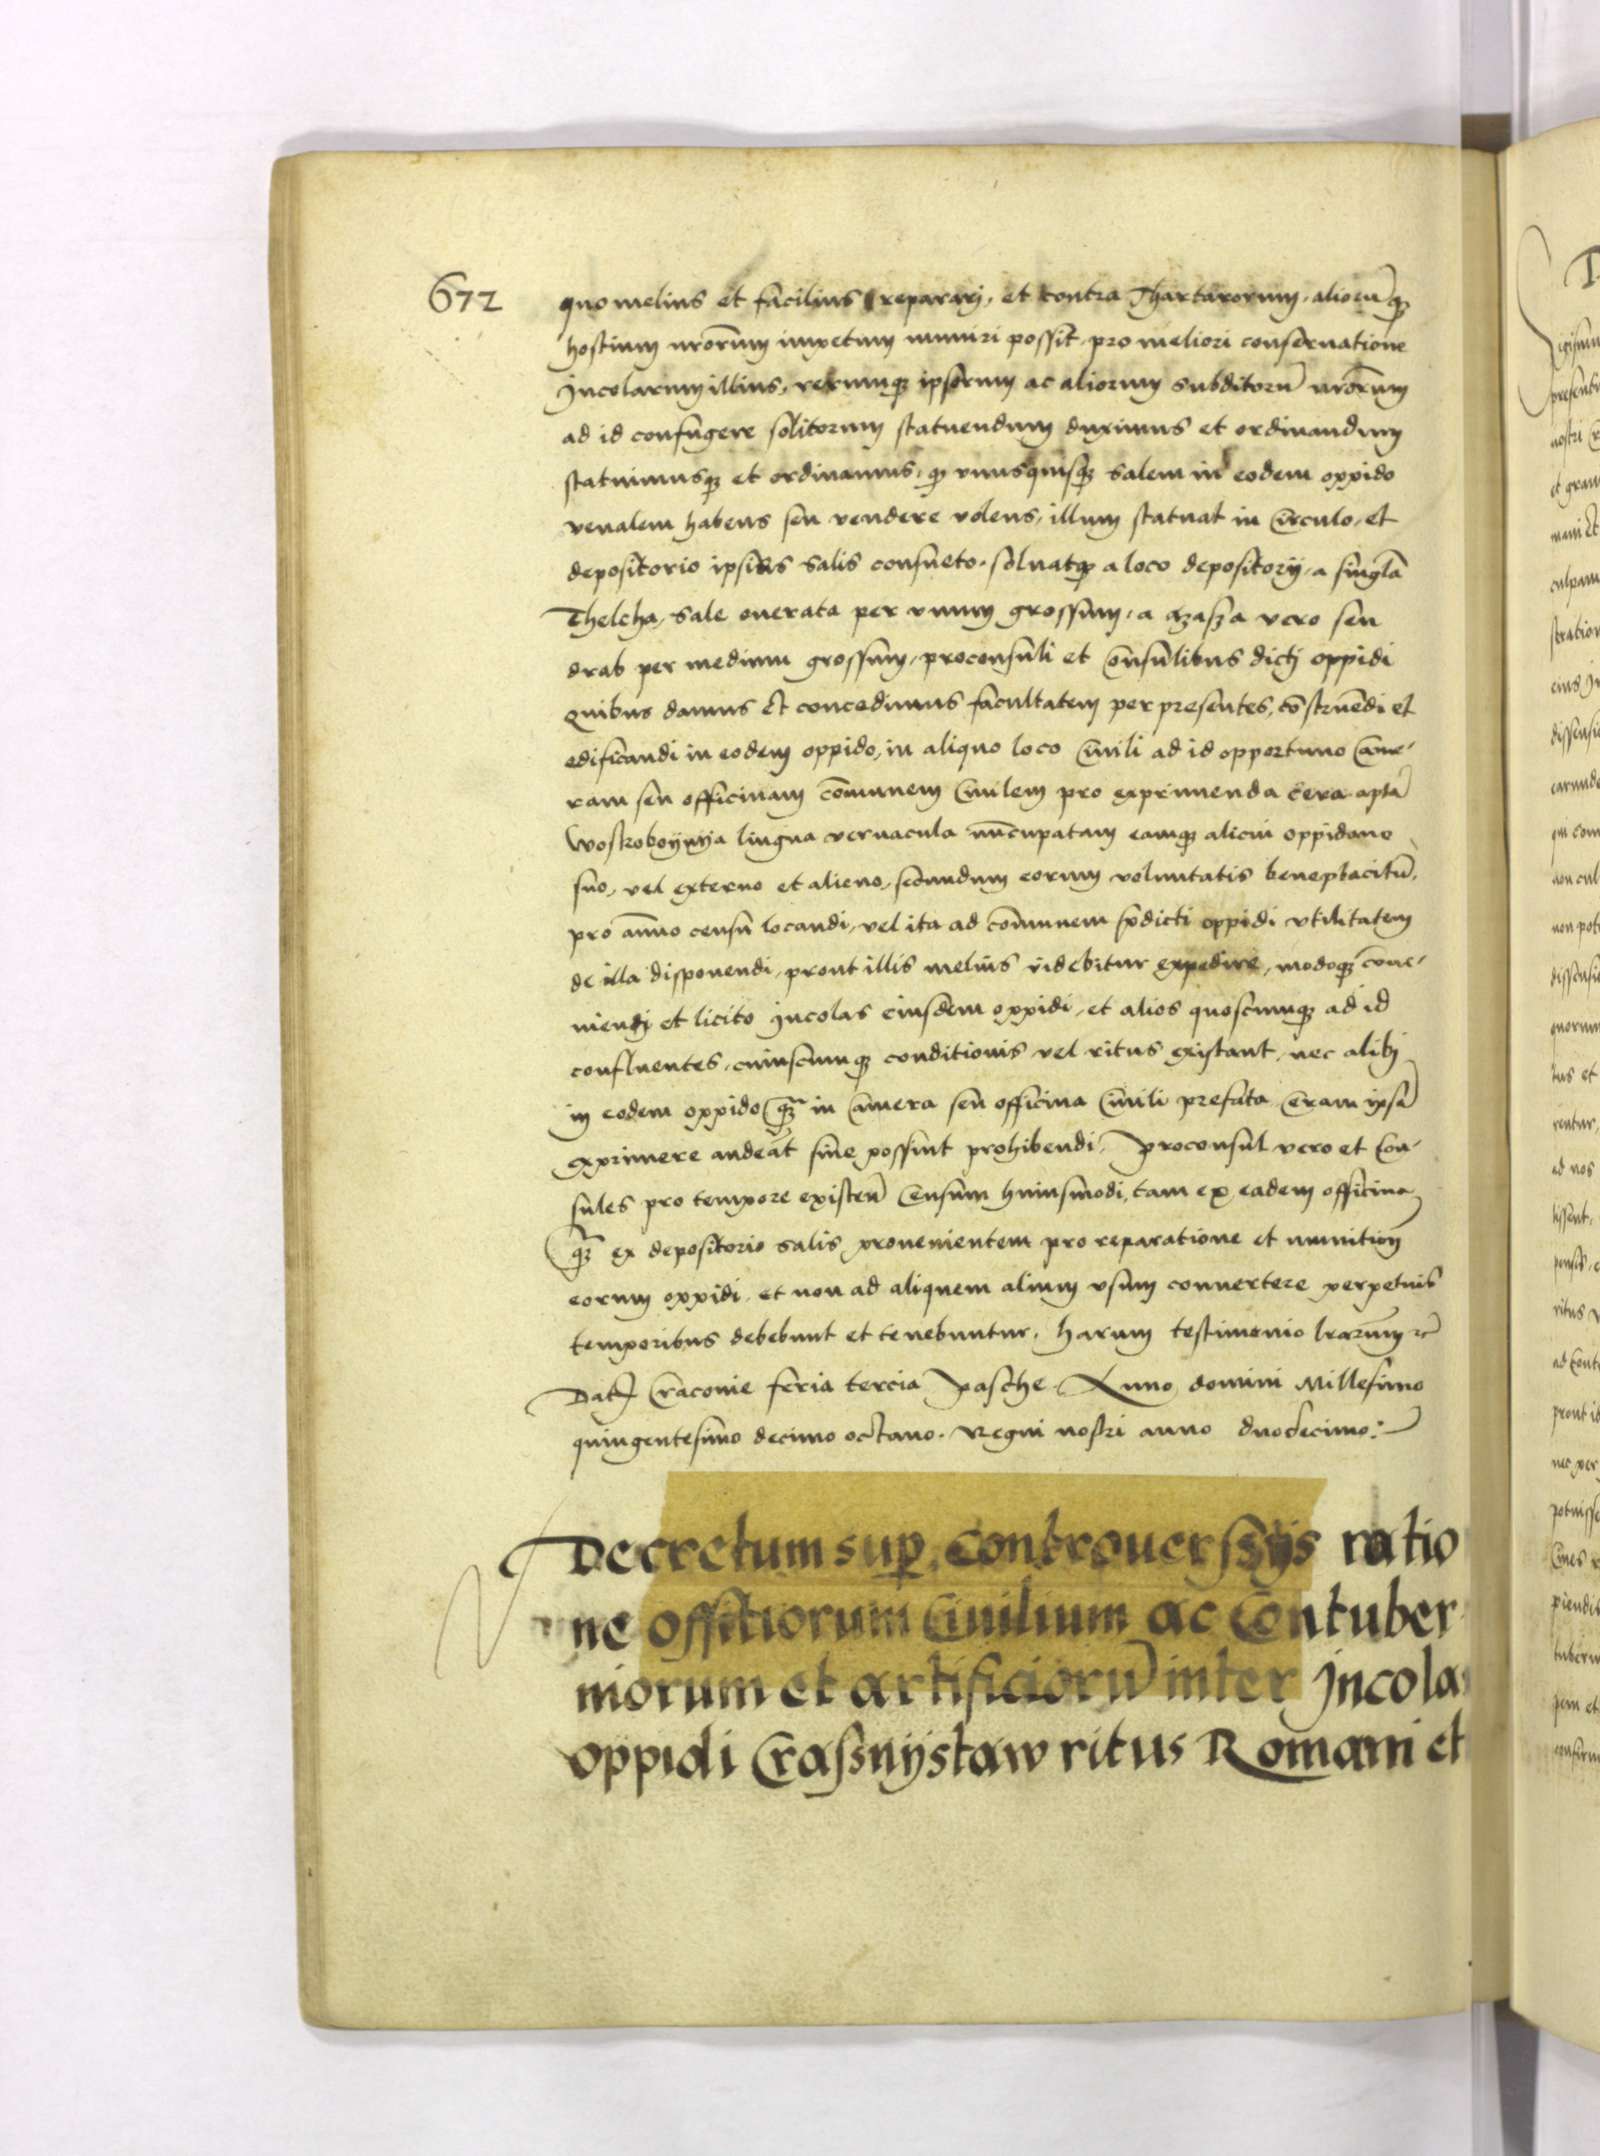 672
quo melius et facilius reparari, et contra Thartarorum, aliorũqꝫ
hostium nr̃orum impetum muniri possit, pro meliori conseruatione
Incolarum illius, rerumqꝫ ipsorum ac aliorum subditorũ nr̃orum
ad id confugere solitorum statuendum duximus et ordinandum
statuimusqꝫ et ordinamus, qꝫ vnusquisqꝫ salem in eodem oppido
venalem habens seu vendere volens, illum statuat in Circulo, et
depositorio ipsius salis consueto, soluatqꝫ a loco depositorij, a singl̃a
Thelcha, sale onerata per vnum grossum, a vero seu
drab per medium grossum, proconsuli et Cõnsulibus dicti oppidi
Quibus damus Et concedimus facultatem per presentes, cõstruẽdi et
edificandi in eodem oppido, in aliquo loco Ciuili ad id opportuno Came-
ram seu officinam cõmunem Ciuilem pro exprimenda cera aptã
Wostroboynya lingua vernacula nũcupatam eamqꝫ alicui oppidano
suo, vel externo et alieno, secundum eorum voluntatis beneplacitũ,
pro ãnuo censu locandi, vel ita ad cõmunem p̃dicti oppidi vtilitatem
de illa disponendi, prout illis melius videbitur expedire, modoqꝫ conue-
nienti et licito Incolas eiusdem oppidi, et alios quoscunqꝫ ad id
confluentes, cuiuscunqꝫ conditionis vel ritus existant, nec alibi
in eodem oppido qꝫ in Camera seu officina Ciuili prefata Ceram ipsã
exprimere audeãt siue possint prohibendi, Proconsul vero et Con-
sules pro tempore existeñ Censum huiusmodi, tam ex eadem officina
qꝫ ex depositorio salis prouenientem pro reparatione et munitioñ
eorum oppidi, et non ad aliquem alium vsum conuertere perpetuis
temporibus debebunt et tenebuntur, harum testimonio lr̃arum ꝛc̃
Dat̃ Cracouie feria tercia Pasche Anno domini Millesimo
quingentesimo decimo octauo. Regni nostri anno duodecimo:
Decretum suꝑ Controuerssyis ratio
ne offitiorum Ciuilium ac Contuber
niorum et artificiorũ inter Incolas
oppidi Crassnystaw ritus Romani et